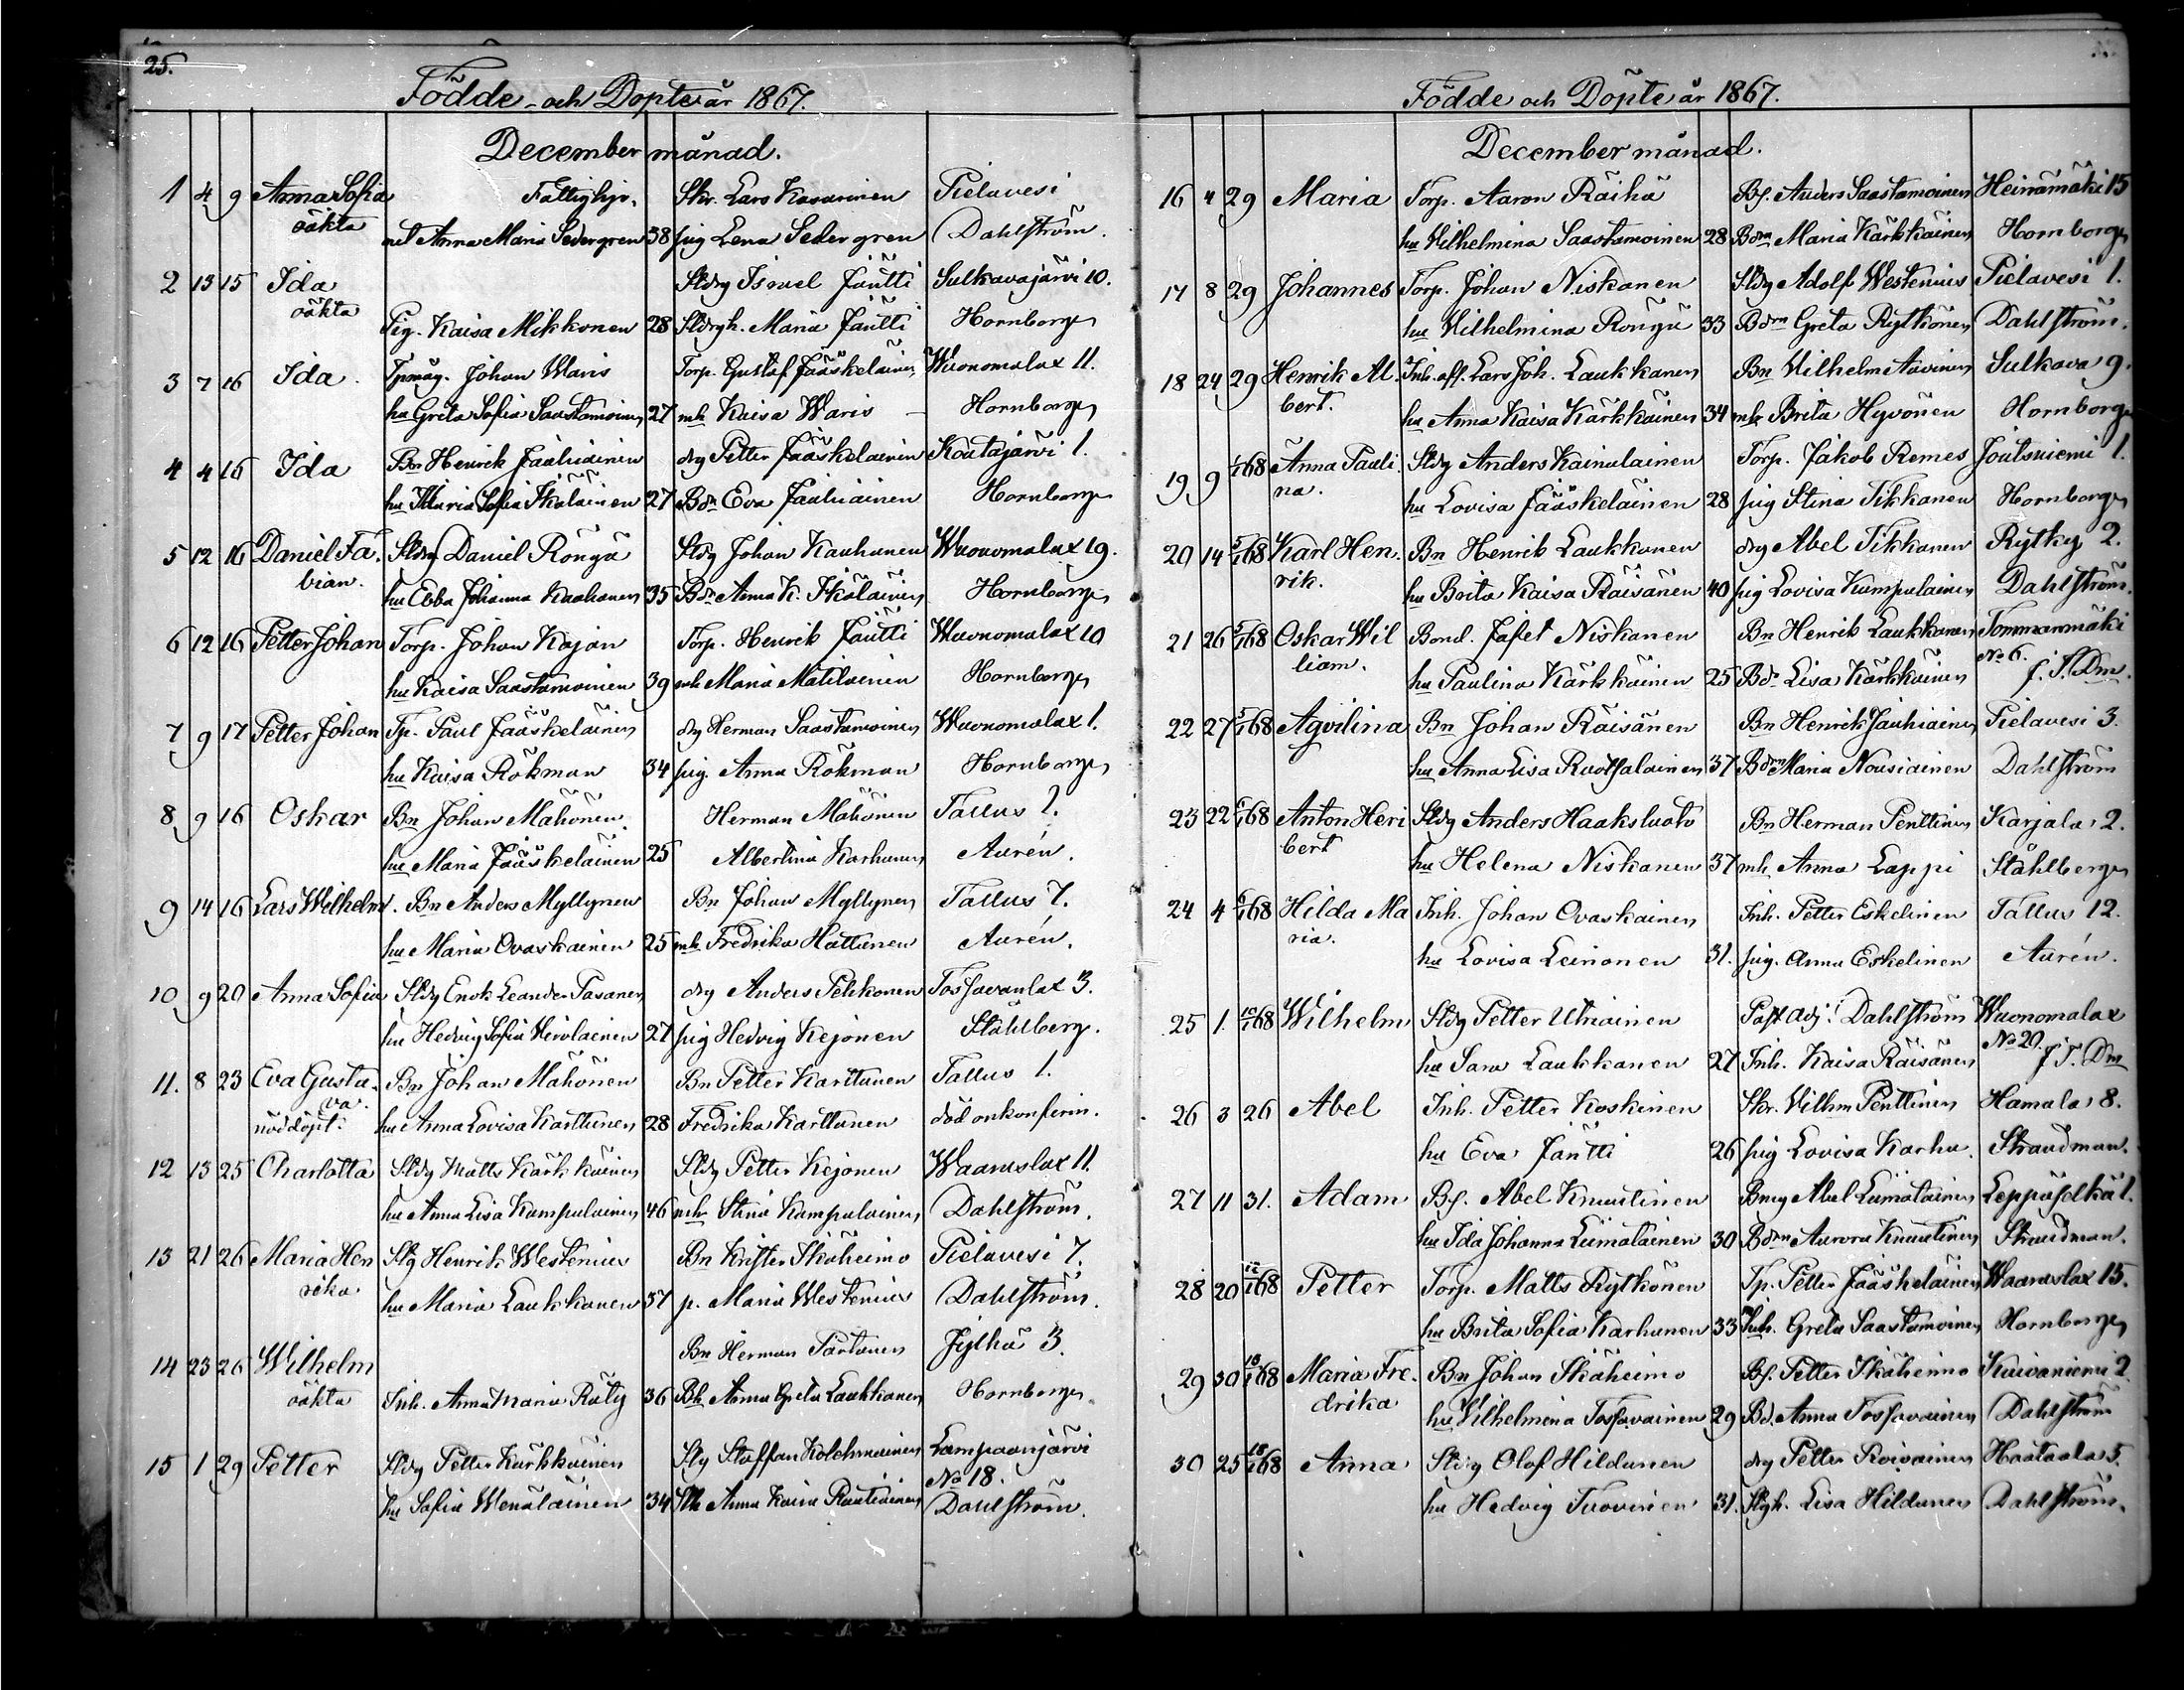 25.
Födde och Döpte år 1867.
December månad.
1 4 9 Anna Sofia Fattighjo. Skr. Lars Kasurinen Pielavesi
oäkta Anna Maria Sedergren 38 pig Lena Sedergren Dahlström.
2 13 15 Ida Sldrg Israel Jäntti Sulkavajärvi 10.
oäkta Pig. Kaisa Mikkonen 28 Sldrgh. Maria Jäntti Hornborg
3 7 16 Ida. Tpmåg. Johan Waris Torp. Gustaf Jääskeläinen Wuonomalax 11.
hu Greta Sofia Saastamoinen 27 mh Kaisa Waris Hornborg
4 4 16 Ida Bn Henrik Jauhiainen drg Petter Jääskelainen Koutajärvi 1.
hu Maria Sofia Ikäläinen 27 Bdn Eva Jauhiainen Hornborg
5 12 16 Daniel Fa- Sldrg Daniel Ronga Sldrg Johan Kauhanen Wuonomalax 19.
bian. hu Ebba Johanna Kauhanen 35 Bdn Anna K. Ikäläinen Hornborg
6 12 16 Petter Johan Torp. Johan Kajan Torp. Henrik Jäntti Wuonomalax 10
hu Kaisa Saastamoinen 39 mh Maria Matilainen Hornborg
7 9 17 Petter Johan Tp. Paul Jääskeläinen drg Herman Saastamoinen Wuonomalax 1.
hu Kaisa Rökman 34 pig. Anna Rökman Hornborg
8 9 16 Oskar Bn Johan Mähönen Herman Mähönen Tallus 2.
hu Maria Jääskeläinen 25 Albertina Karhunen Aurén.
9 14 16 Lars Wilhelm. Bn Anders Myllynen Bn Johan Myllynen Tallus 7.
hu Maria Ovaskainen 25 mh Fredrika Hattunen Aurén.
10 9 20 Anna Sofia Sldrg Enok Leander Pasanen drg Anders Pehkonen Tossavanlax 3.
hu Hedvig Sofia Hirvlainen 27 pig Hedvig Kejonen Ståhlberg.
11. 8 23 Eva Gusta- Bn Johan Mähönen Bn Petter Karttunen Tallus 1.
va.
nöddöpt. hu Anna Lovisa Karttunen 28 Fredrika Karttunen död onkonfirm.
12 13 25 Charlotta Sldrg Matts Kärkkäinen Sldrg Petter Kejonen Waaraslax 11.
hu Anna Lisa Kumpulainen 46 mh Stina Kumpulainen Dahlström.
13 21 26 Maria Hen Slg Henrik Westenius Bn Krister Ikäheimo Pielavesi 7.
rika hu Maria Laukkanen 37 p. Maria Westenius Dahlström.
14 23 26 Wilhelm Bn Herman Partanen Jylhä 3.
oäkta Inh. Anna Maria Räty 36 Bh Anna Greta Laukkanen Hornborg.
15 1 29 Petter Sldrg Petter Kärkkäinen Slg Staffan Kolehmainen Lampaanjärvi
No 18.
hu Sofia Wenäläinen 34 Anna Kaisa Rautiainen Dahlström.
Födde och Döpte år 1867.
December månad.
16 4 29 Maria Torp. Aaron Räihä Bf. Anders Saastamoinen Heinämäki 15
hu Wilhelmina Saastamoinen 28 Bdrn Maria Kärkkäinen Hornborg
17 8 29 Johannes Torp. Johan Niskanen Sldrg Adolf Westenius Pielavesi 1.
hu Wilhelmina Ronga 33 Bdrn Greta Rytkönen Dahlström.
18 24 29 Henrik Al- Inh. aff. Lars Joh. Laukkanen Bn Wilhelm Auvinen Sulkava 9.
bert. hu Anna Kaisa Kärkkäinen 34 mh Brita Hyvönen Hornborg
19 9 1/1 68 Anna Pauli Sldrg Anders Kainulainen Torp. Jakob Remes Joutsniemi 1.
na. hu Lovisa Jääskeläinen 28 pig Stina Tikkanen Hornborg
20 14 5/1 68 Karl Hen- Bn Henrik Laukkanen drg Abel Tikkanen Rytky 2.
rik. hu Brita Kaisa Räisänen 40 pig Lovisa Kumpulainen Dahlström.
21 26 5/1 68 Oskar Wil Bond. Jafet Niskanen Bn Henrik Laukkanen Tommanmäki
liam. hu Paulina Kärkkäinen 25 Bd Lisa Kärkkäinen No 6. f. T. Dm.
22 27 5/1 68 Agvilina Bn Johan Räisänen Bn Henrik Jauhiainen Pielavesi 3.
hu Anna Lisa Ruotsalainen 37 Bdrn Maria Nousiainen Dahlström
23 22 6/1 68 Anton Heri Sldrg Anders Haaksluoto Bn Herman Penttinen Karjala 2.
bert hu Helena Niskanen 37 mh. Anna Lappi Ståhlberg
24 4 6/1 68 Hilda Ma Inh. Johan Ovaskainen Inh. Petter Eskelinen Tallus 12.
ria. hu Lovisa Leinonen 31. pig. Anna Eskelinen Aurén.
25 1. 10/1 68 Wilhelm Sldrg Petter Utriainen Past adj. Dahlström Wuonomalax
hu Sara Laukkanen 27 Inh. Kaisa Räisänen No 20. f. T. Dm
26 3 26 Abel Inh. Petter Koskinen Skr. Wilhm Penttinen Hamala 8.
hu Eva Jäntti 26 pig Lovisa Karhu. Strandman.
27 11 31. Adam Bf. Abel Knuutinen Bmg Abel Liimatainen Leppäselkä 1.
hu Ida Johanna Liimatainen 30 Bdrn Aurora Knuutinen Strandman.
28 20 12/1 68 Petter Torp. Matts Rytkönen Tp. Petter Jääskeläinen Waaraslax 15.
hu Brita Sofia Karhunen 33 Inh. Greta Saastamoinen Hornborg
29 30 18/1 68 Maria Fre- Bn Johan Ikäheimo Bf. Petter Ikäheimo Kuivaniemi 2.
drika hu Wilhelmina Tossavainen 29 Bd. Anna Tossavainen Dahlström
30 25 18/1 68 Anna Sldrg Olof Hildunen drg Petter Roivainen Haataala 5.
hu Hedvig Tuovinen 31. Slgh. Lisa Hildunen Dahlström.